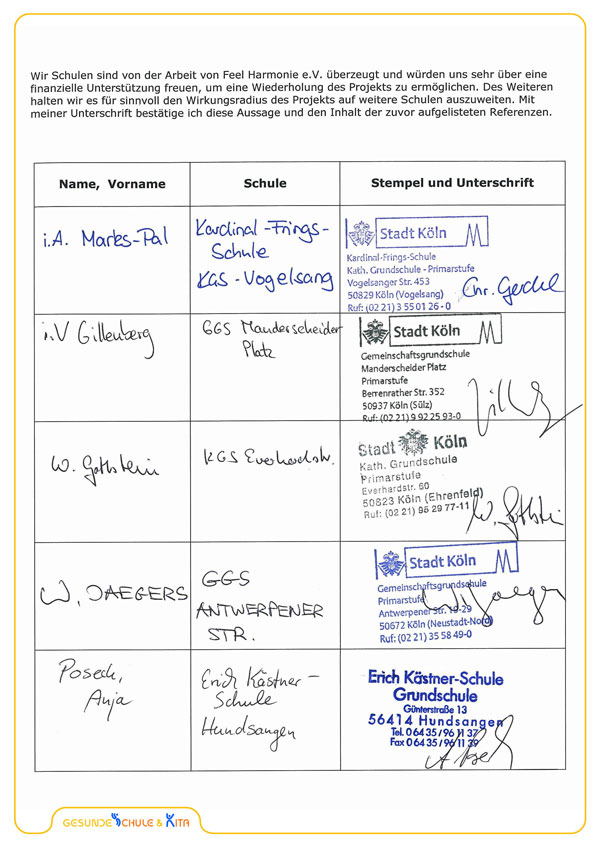 Wir Schulen sind von der Arbeit von Feel Harmonie e.V. überzeugt und würden uns sehr über eine
finanzielle Unterstützung freuen, um eine Wiederholung des Projekts zu ermöglichen. Des Weiteren
halten wir es für sinnvoll den Wirkungsradius des Projekts auf weitere Schulen auszuweiten. Mit
meiner Unterschrift bestätige ich diese Aussage und den Inhalt der zuvor aufgelisteten Referenzen.
Name, Vorname
Schule
Stempel und Unterschrift
i.A. Marks-Pal
Kardinal-Frings-
Schule
KGS-Vogelsang
Stadt Köln
Kardinal-Frings-Schule
Kath. Grundschule - Primarstufe
Vogelsanger Str. 453
50829 Köln (Vogelsang)
Ruf: (02 21) 3 55 01 26 - 0
i.V Gillenberg
GGS Manderscheider
Platz
Stadt Köln
Gemeinschaftsgrundschule
Manderscheider Platz
Primarstufe
Berrenrather Str. 352
50937 Köln (Sülz)
Ruf: (02 21) 9 92 25 93-0
W. Gottstein
KGS Everhardstr.
Stadt Köln
Kath. Grundschule
Primarstufe
Everhardstr. 60
50823 Köln (Ehrenfeld)
Ruf: (02 21) 95 29 77-11
W. Gottstein
W. JAEGERS
GGS
ANTWERPENER
STR.
Stadt Köln
Gemeinschaftsgrundschule
Primarstufe
Antwerpener Str. 19-29
50672 Köln (Neustadt-Nord)
Ruf: (02 21) 35 58 49-0
W. Jaegers
Posech,
Anja
Erich Kästner-
Schule
Hundsangen
Erich Kästner-Schule
Grundschule
Günterstraße 13
56414 Hundsangen
Tel. 0 64 35 / 96 11 37
Fax 0 64 35 / 96 11 39
GESUNDE SCHULE & KITA